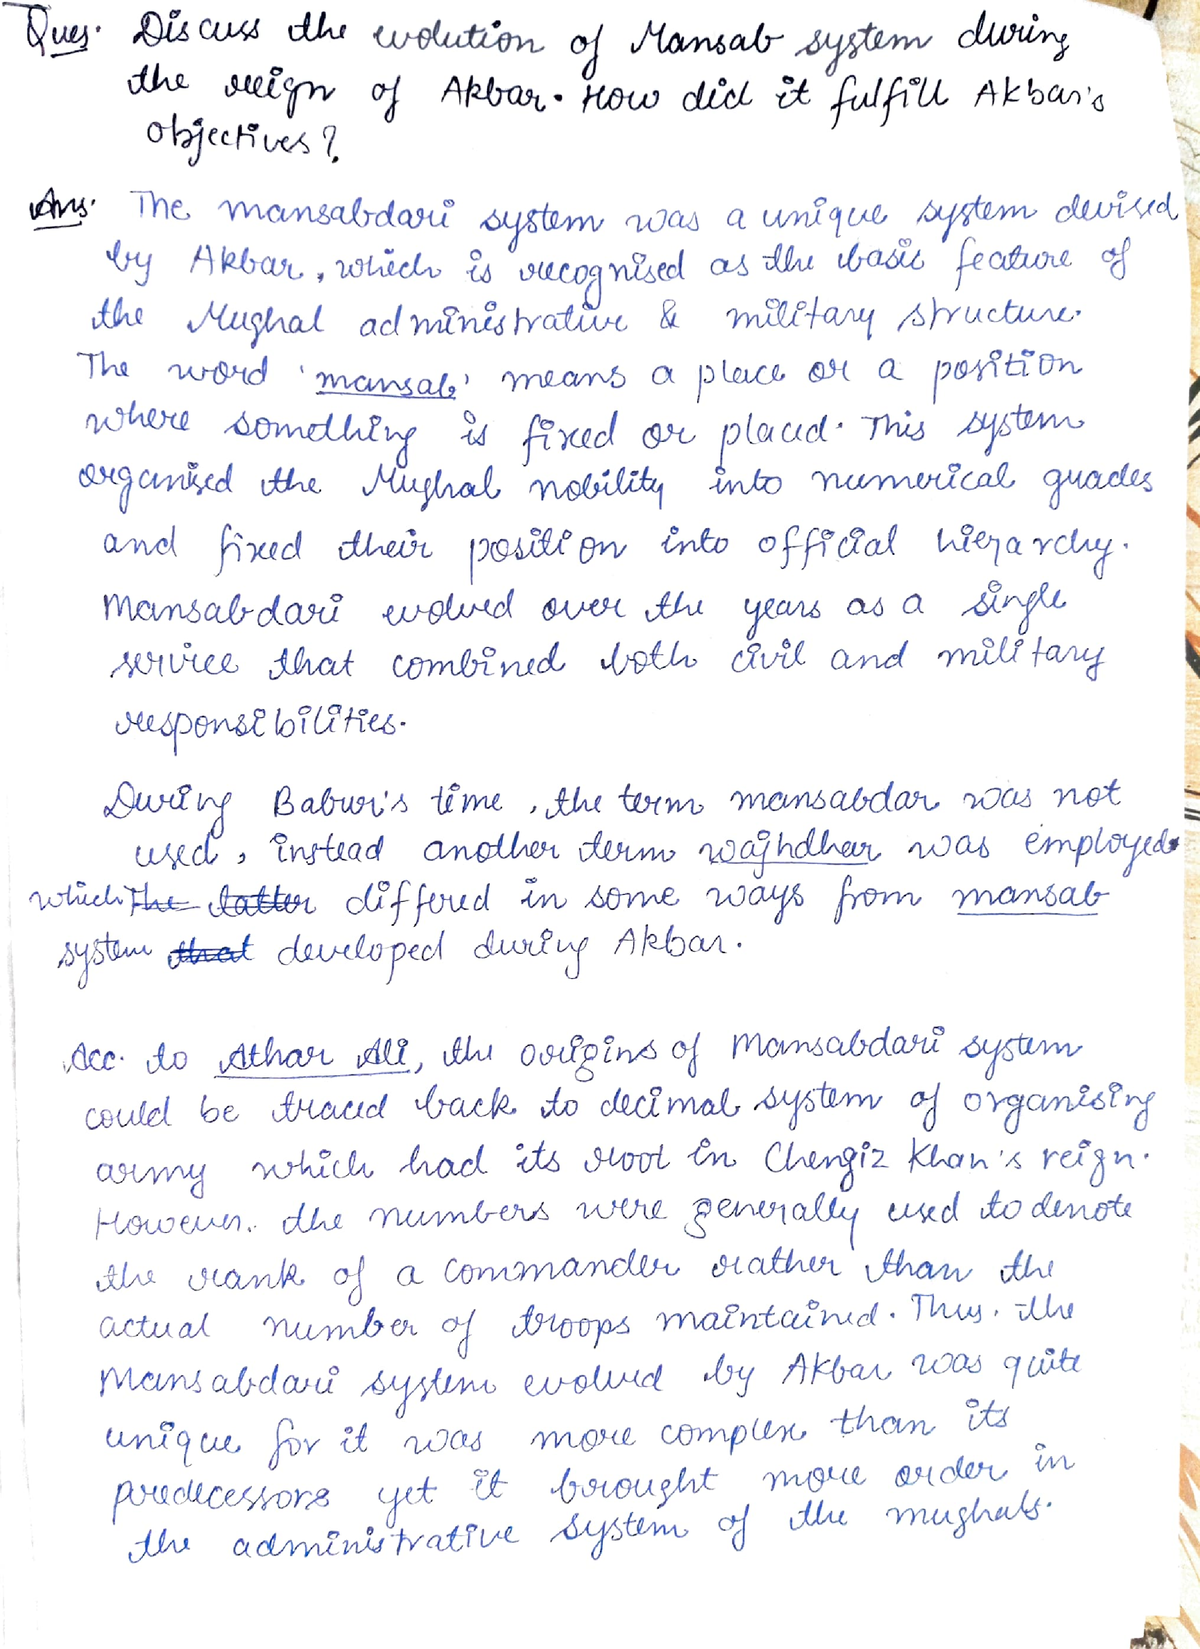 Ques. Discuss the evolution of Mansab system during
the reign of Akbar. How did it fulfill Akbar's
objectives?
Ans. The mansabdari system was a unique system devised
by Akbar, which is recognised as the basic feature of
the Mughal administrative & military structure.
The word 'mansab' means a place or a position
where something is fixed or placed. This system
organised the Mughal nobility into numerical grades
and fixed their position into official hierarchy.
Mansabdari evolved over the years as a single
service that combined both civil and military
responsibilities.
During Babur's time, the term mansabdar was not
used, instead another term wajhdhar was employed
which The latter differed in some ways from mansab
system that developed during Akbar.
Acc. to Athar Ali, the origins of Mansabdari system
could be traced back to decimal system of organising
army which had its root in Chengiz Khan's reign.
However, the numbers were generally used to denote
the rank of a commander rather than the
actual number of troops maintained. Thus, the
Mansabdari system evolved by Akbar was quite
unique for it was more complex than its
predecessors yet it brought more order in
the administrative system of the mughals.